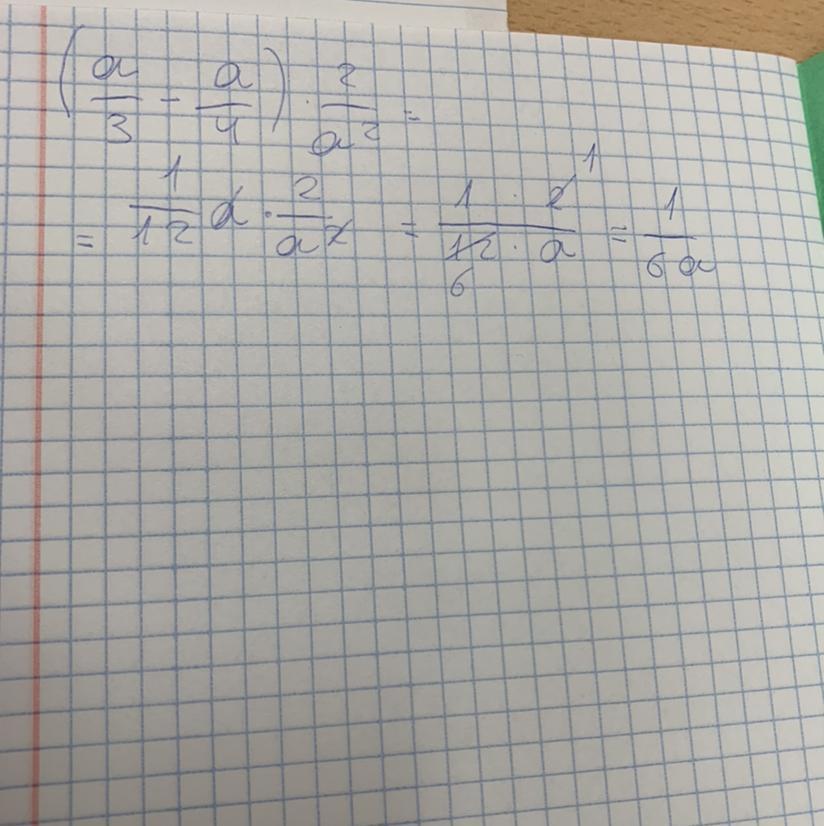 (a/3 - a/4) · 2/a² =
= 1/12 a · 2/a² = 1 · 2 1/12 6 · a = 1/6a